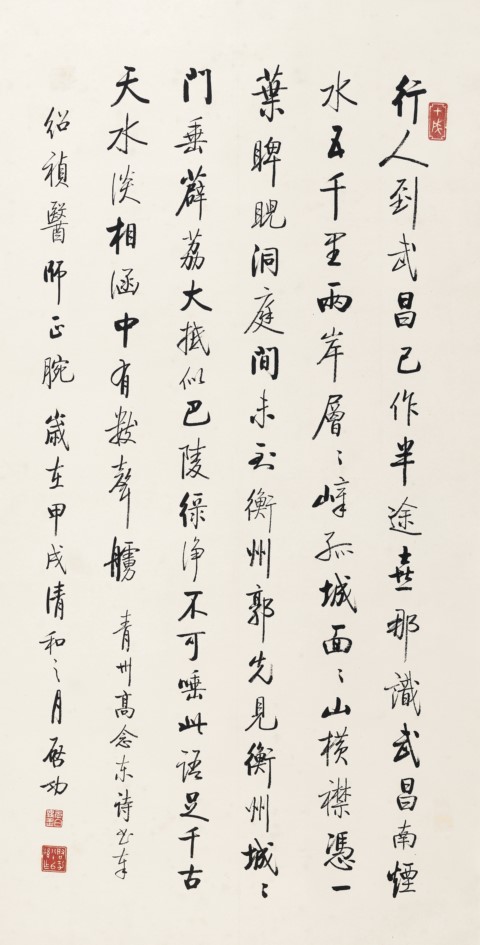 行人到武昌已作半途喜那識武昌南煙
水五千里兩岸層〻嶂孤城面〻山橫襟憑一
葉睥睨洞庭間未至衡州郭先見衡州城〻
門垂薜荔大抵似巴陵綠净不可唾此語足千古
天水淡相涵中有數聲艣 青州高念東詩書奉
紹禎醫師正腕 歲在甲戌清和之月啓功